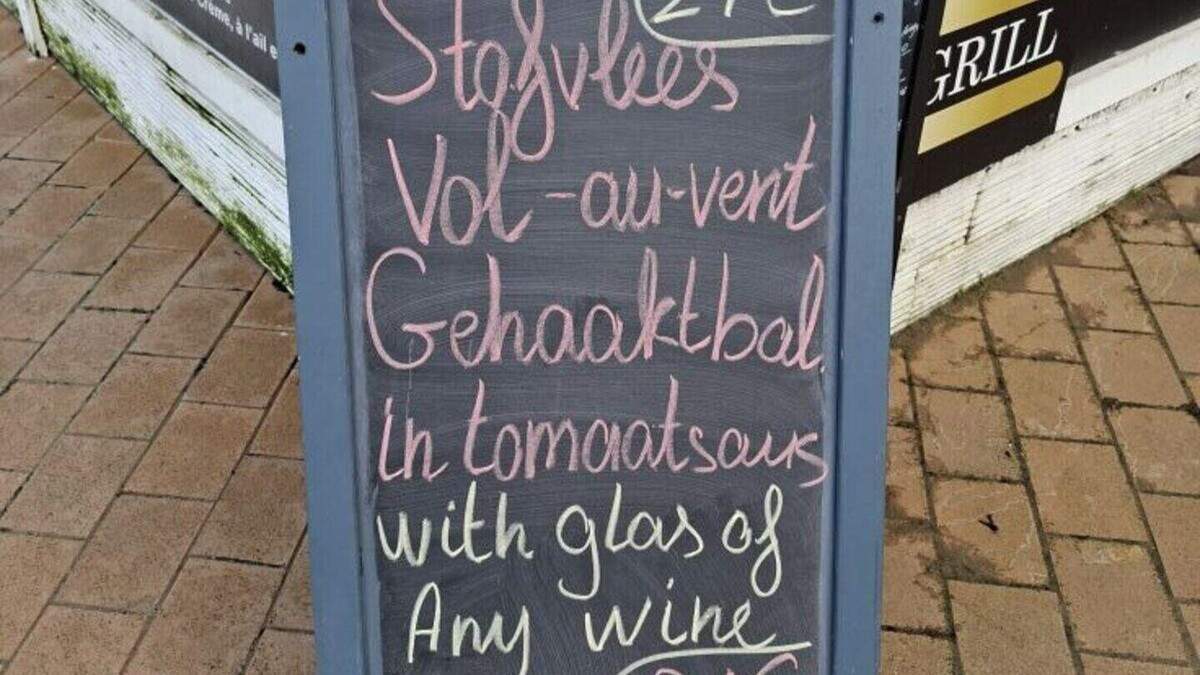 Stofvlees
Vol-au-vent
Gehaaktbal
in tomaatsaus
with glas of
Any wine
GRILL